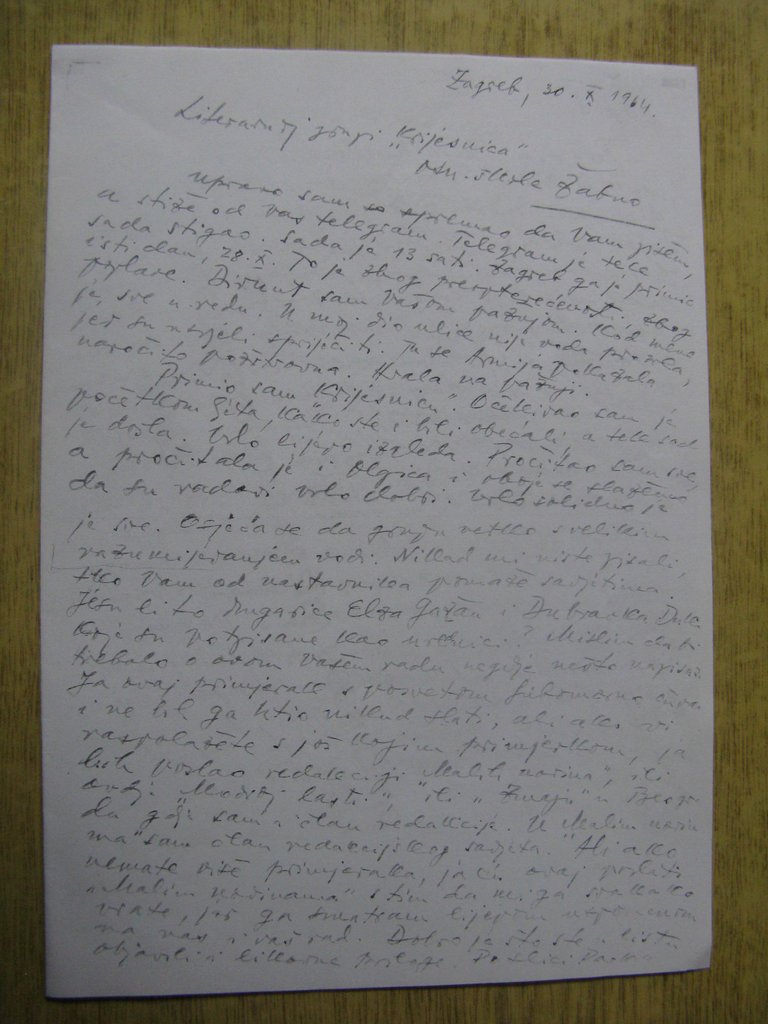 Zagreb, 30. X 1964.
Literarnoj grupi "Krijesnica"
osn. škole Žabno
Upravo sam se spremao da Vam pišem,
a stiže od vas telegram. Telegram je tek
sada stigao. Sada je 13 sati. Zagreb ga je primio
isti dan, 28. X. To je zbog preopterećenosti, zbog
poplave. Dirnut sam Vašom pažnjom. Kod mene
je, sve u redu. U moj dio ulice nije voda prodrla,
jer su uspjeli spriječiti. Tu se Armija pokazala
naročito požrtvovna. Hvala na pažnji.
Primio sam "Krijesnicu". Očekivao sam je
početkom ljeta, kako ste i bili obećali, a tek sad
je došla. Vrlo lijepo izgleda. Pročitao sam sve,
a pročitala je i Olgica i oboje se slažemo
da su radovi vrlo dobri. Vrlo solidno je
je sve. Osjeća se da grupu netko s velikim
razumijevanjem vodi. Nikad mi niste pisali,
tko vam od nastavnika pomaže savjetima.
Jesu li to drugarice Elza i Dubravka
koje su potpisane kao urednici? Mislim da bi
trebalo o ovom vašem radu negdje nešto napisati.
Za ovaj primjerak s posvetom ljubomorno
i ne bih ga htio nikud slati, ali ako vi
raspolažete s još kojim primjerkom, ja
bih poslao redakciji "Malih novina", ili
ovdje "Modroj lasti", ili "Zmaju" u Beogra-
du gdje sam i član redakcije. U "Malim novina-
ma" sam član redakcijskog savjeta. Ali ako
nemate više primjeraka, ja ću ovaj poslati
"Malim novinama" s tim da mi ga svakako
vrate, jer ga smatram lijepom uspomenom
na vas i vaš rad. Dobro je što ste u listu
objavili i likovne priloge.